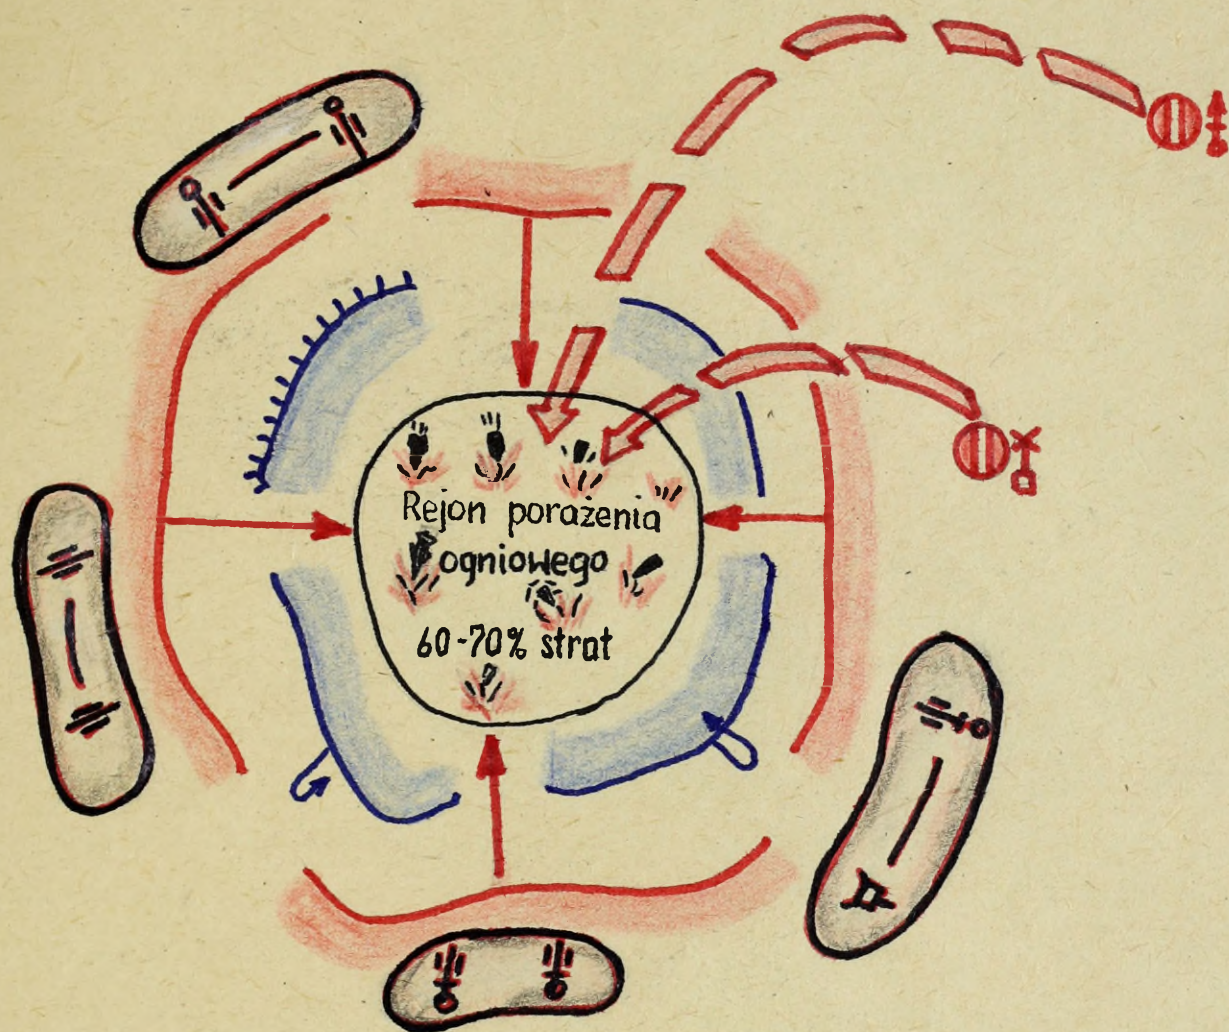 Rejon porażenia
ogniowego
60-70% strat